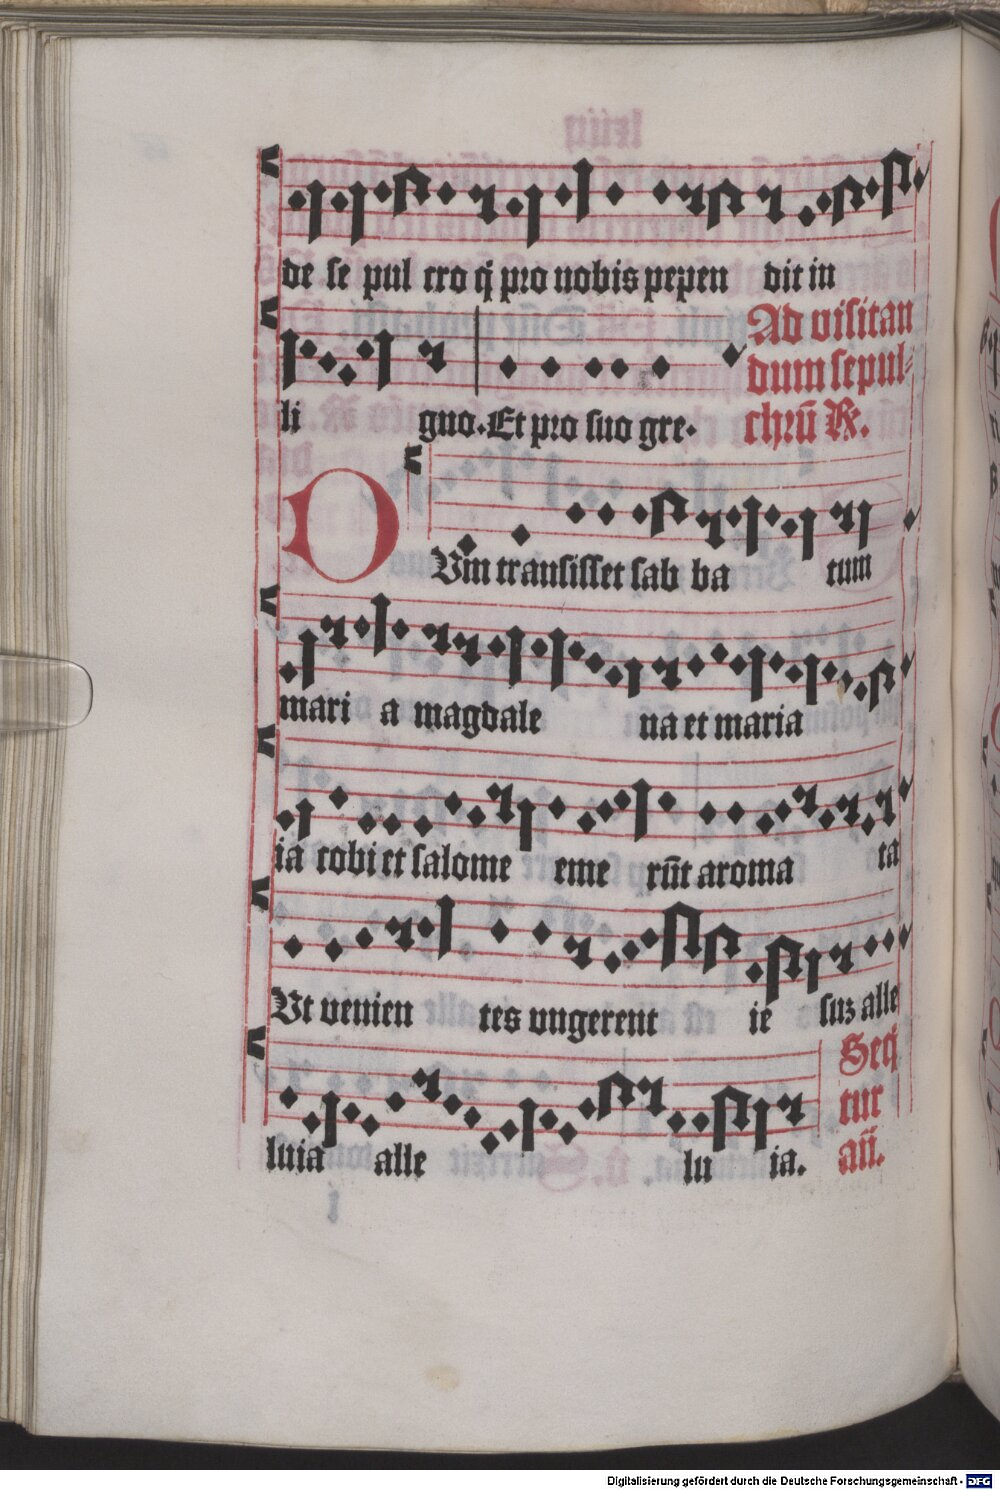 de se pul cro qͥ pro nobis pepen dit in
li gno. Et pro suo gre.
Ad visitan
dum sepul⸗
chrū ℞.
DVm transisset sab ba tum
mari a magdale na et maria
ia cobi et salome eme rūt aroma ta
Vt venien tes vngerent ie suꝫ alle
luia alle lu ia.
Seq̄
tur
añ.
Digitalisierung gefördert durch die Deutsche Forschungsgemeinschaft - DFG